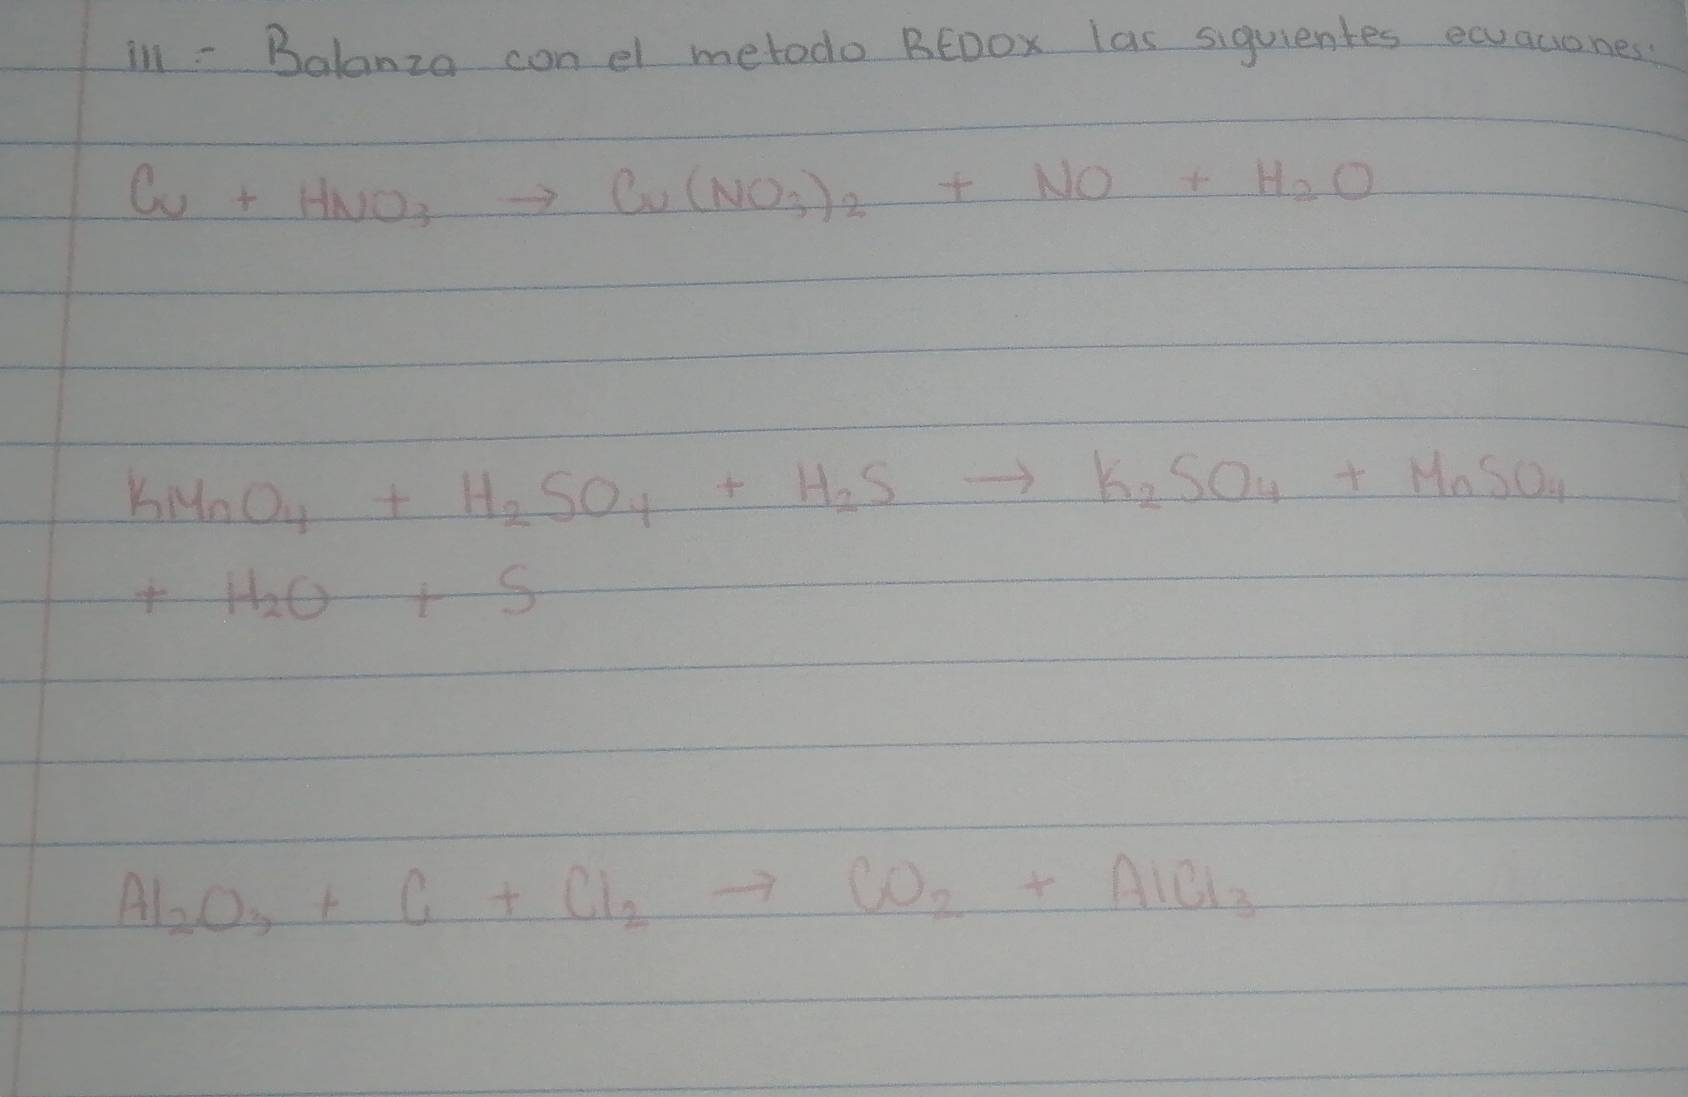 III = Balanza con el metodo REDOX las siguientes ecuaciones:
Cu + HNO₃ → Cu(NO₃)₂ + NO + H₂O
KMnO₄ + H₂SO₄ + H₂S → K₂SO₄ + MnSO₄
+ H₂O + S
Al₂O₃ + C + Cl₂ → CO₂ + AlCl₃